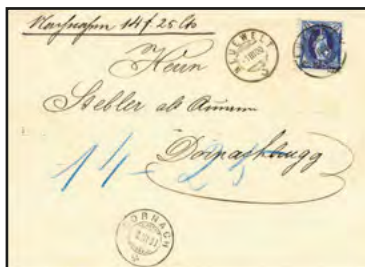 Nachnahm 14 f. 25 Cts
NEUEWELT
Herrn
Stebler als Amann
Dornachbrugg
14 - 25
DORNACH